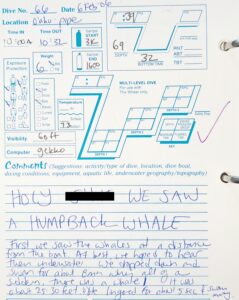 Dive No. 66 Date 6 Feb 06
Location Oahu pipe
Time IN Time OUT
10:32
Exposure Protection
Weight
Temperature
Visibility 60 ft
Computer gekko
START 3K
END 1600
:39
69
32
BOTTOM TIME
MULTI-LEVEL DIVE
For use with
The Wheel only
RNT
ABT
TBT
DEPTH 1
DEPTH 2
Comments (Suggestions: activity/type of dive, location, dive boat,
diving conditions, equipment, aquatic life, underwater geography/topography)
HOLY WE SAW
A HUMPBACK WHALE
First we saw the whales at a distance
from the boat. At best we hoped to hear
them underwater. We dropped down and
swam for about 8min when all of a
sudden, there was a whale! It was
about 25-30 feet off, lingered for about 5 sec & swam
away